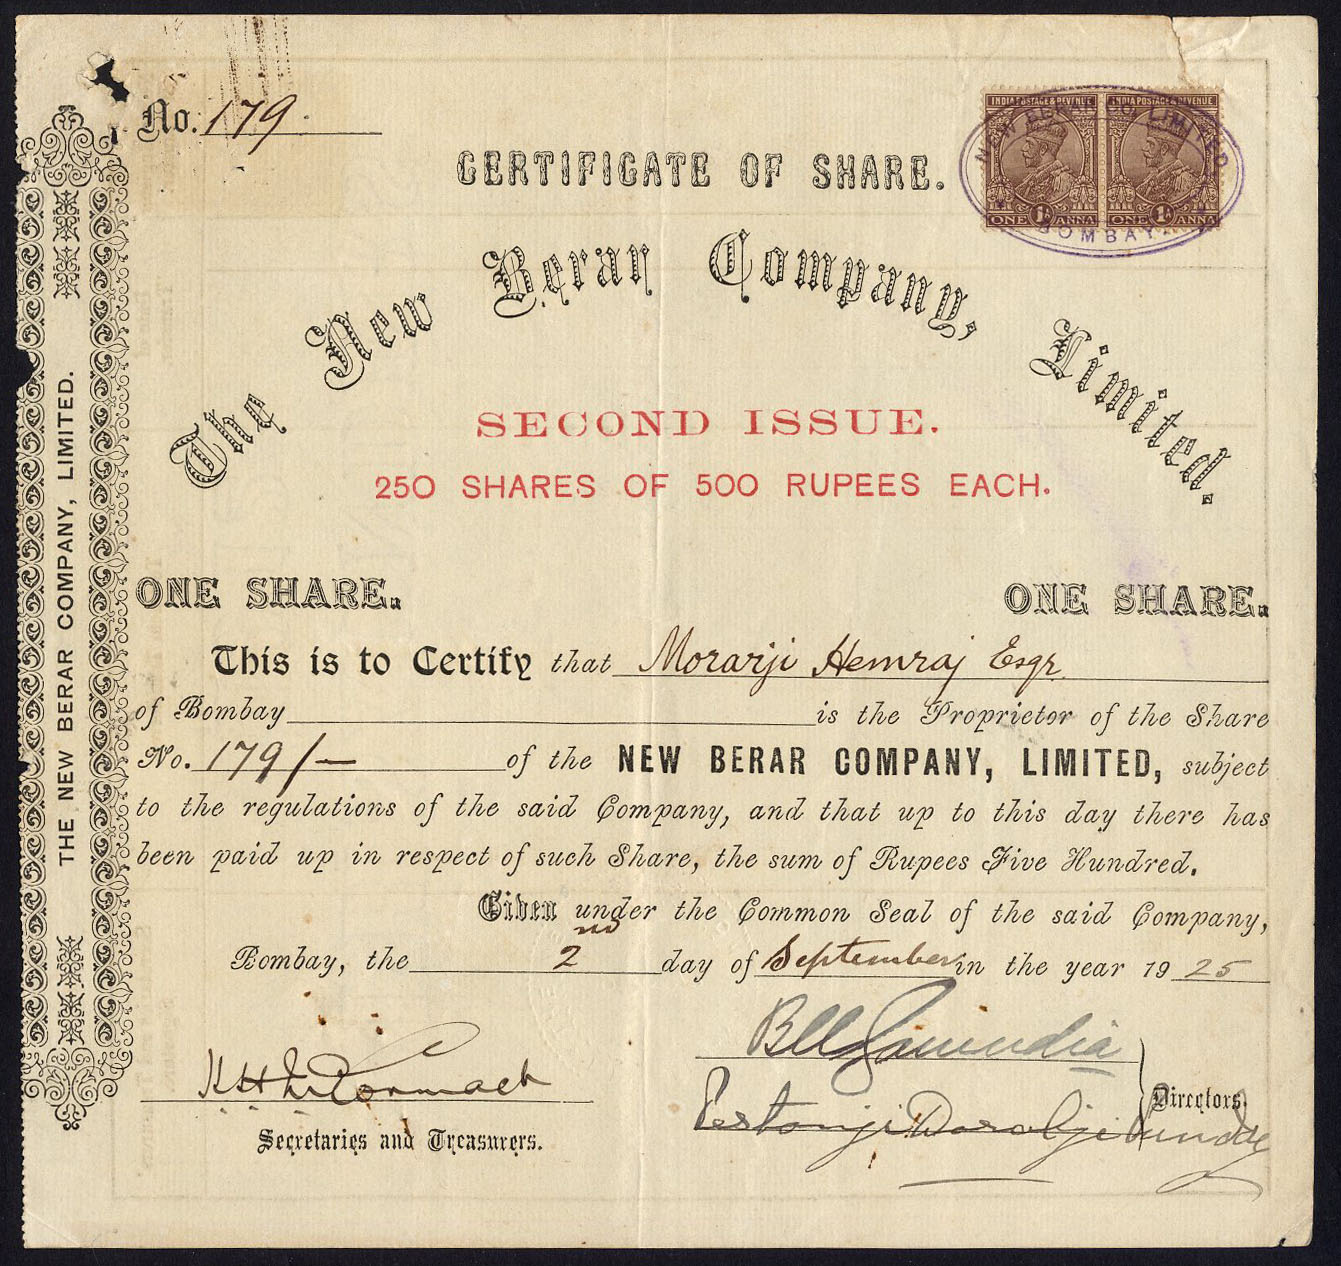 No. 179
CERTIFICATE OF SHARE.
INDIA POSTAGE & REVENUE
ONE 1A ANNA
INDIA POSTAGE & REVENUE
ONE 1A ANNA
NEW BERAR CO. LIMITED
BOMBAY.
The New Berar Company, Limited.
SECOND ISSUE.
250 SHARES OF 500 RUPEES EACH.
ONE SHARE. ONE SHARE.
This is to Certify that Morarji Hemraj Esqr
of Bombay is the Proprietor of the Share
No. 179/- of the NEW BERAR COMPANY, LIMITED, subject
to the regulations of the said Company, and that up to this day there has
been paid up in respect of such Share, the sum of Rupees Five Hundred.
Given under the Common Seal of the said Company,
Bombay, the 2nd day of September in the year 1925
Directors.
Secretaries and Treasurers.
THE NEW BERAR COMPANY, LIMITED.